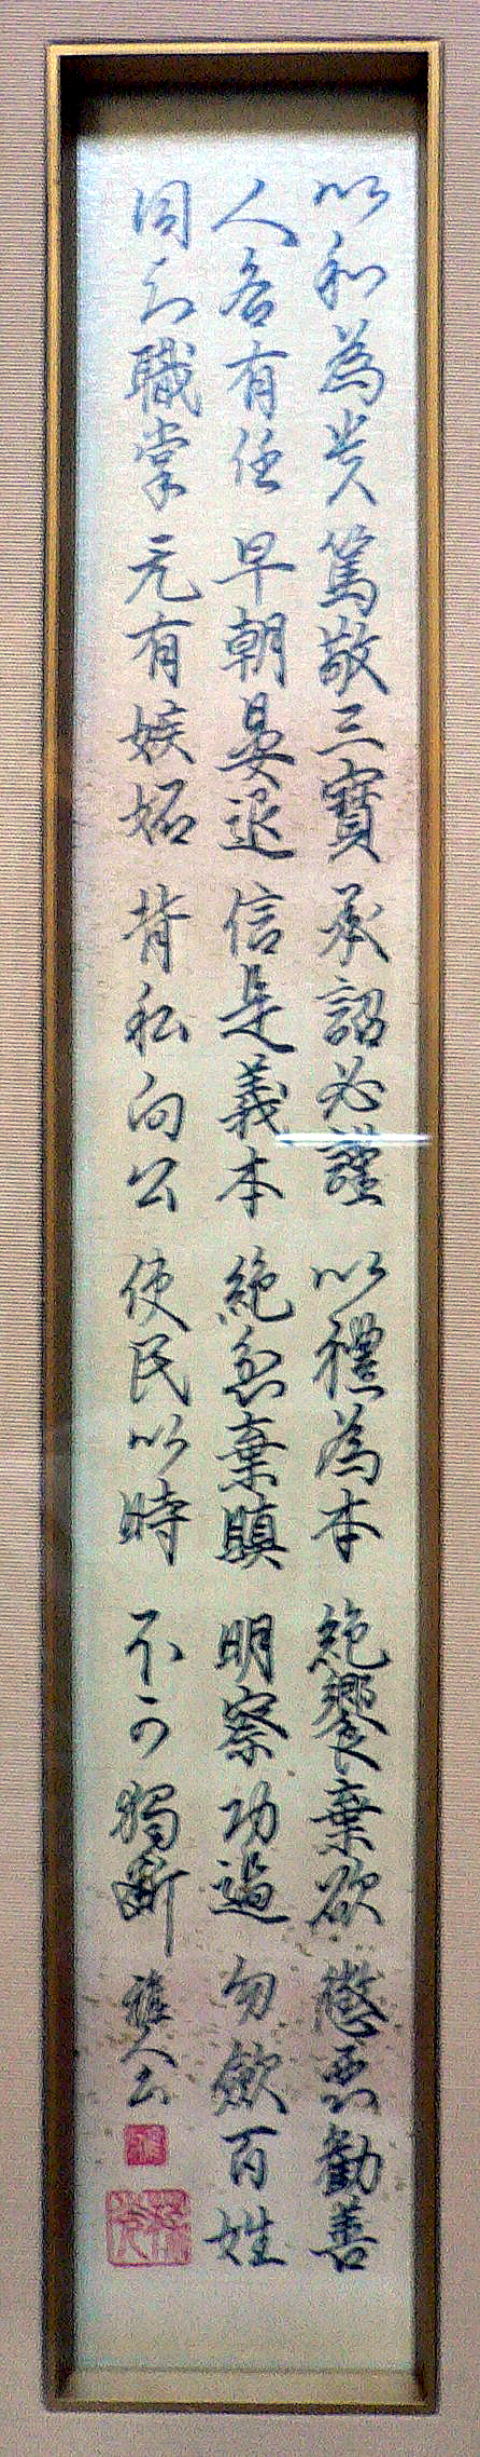 以和為貴 篤敬三寶 承詔必謹 以禮為本 絶饗棄欲 懲惡勸善
人各有任 早朝晏退 信是義本 絶忿棄瞋 明察功過 勿斂百姓
同知職掌 无有嫉妬 背私向公 使民以時 不可獨斷